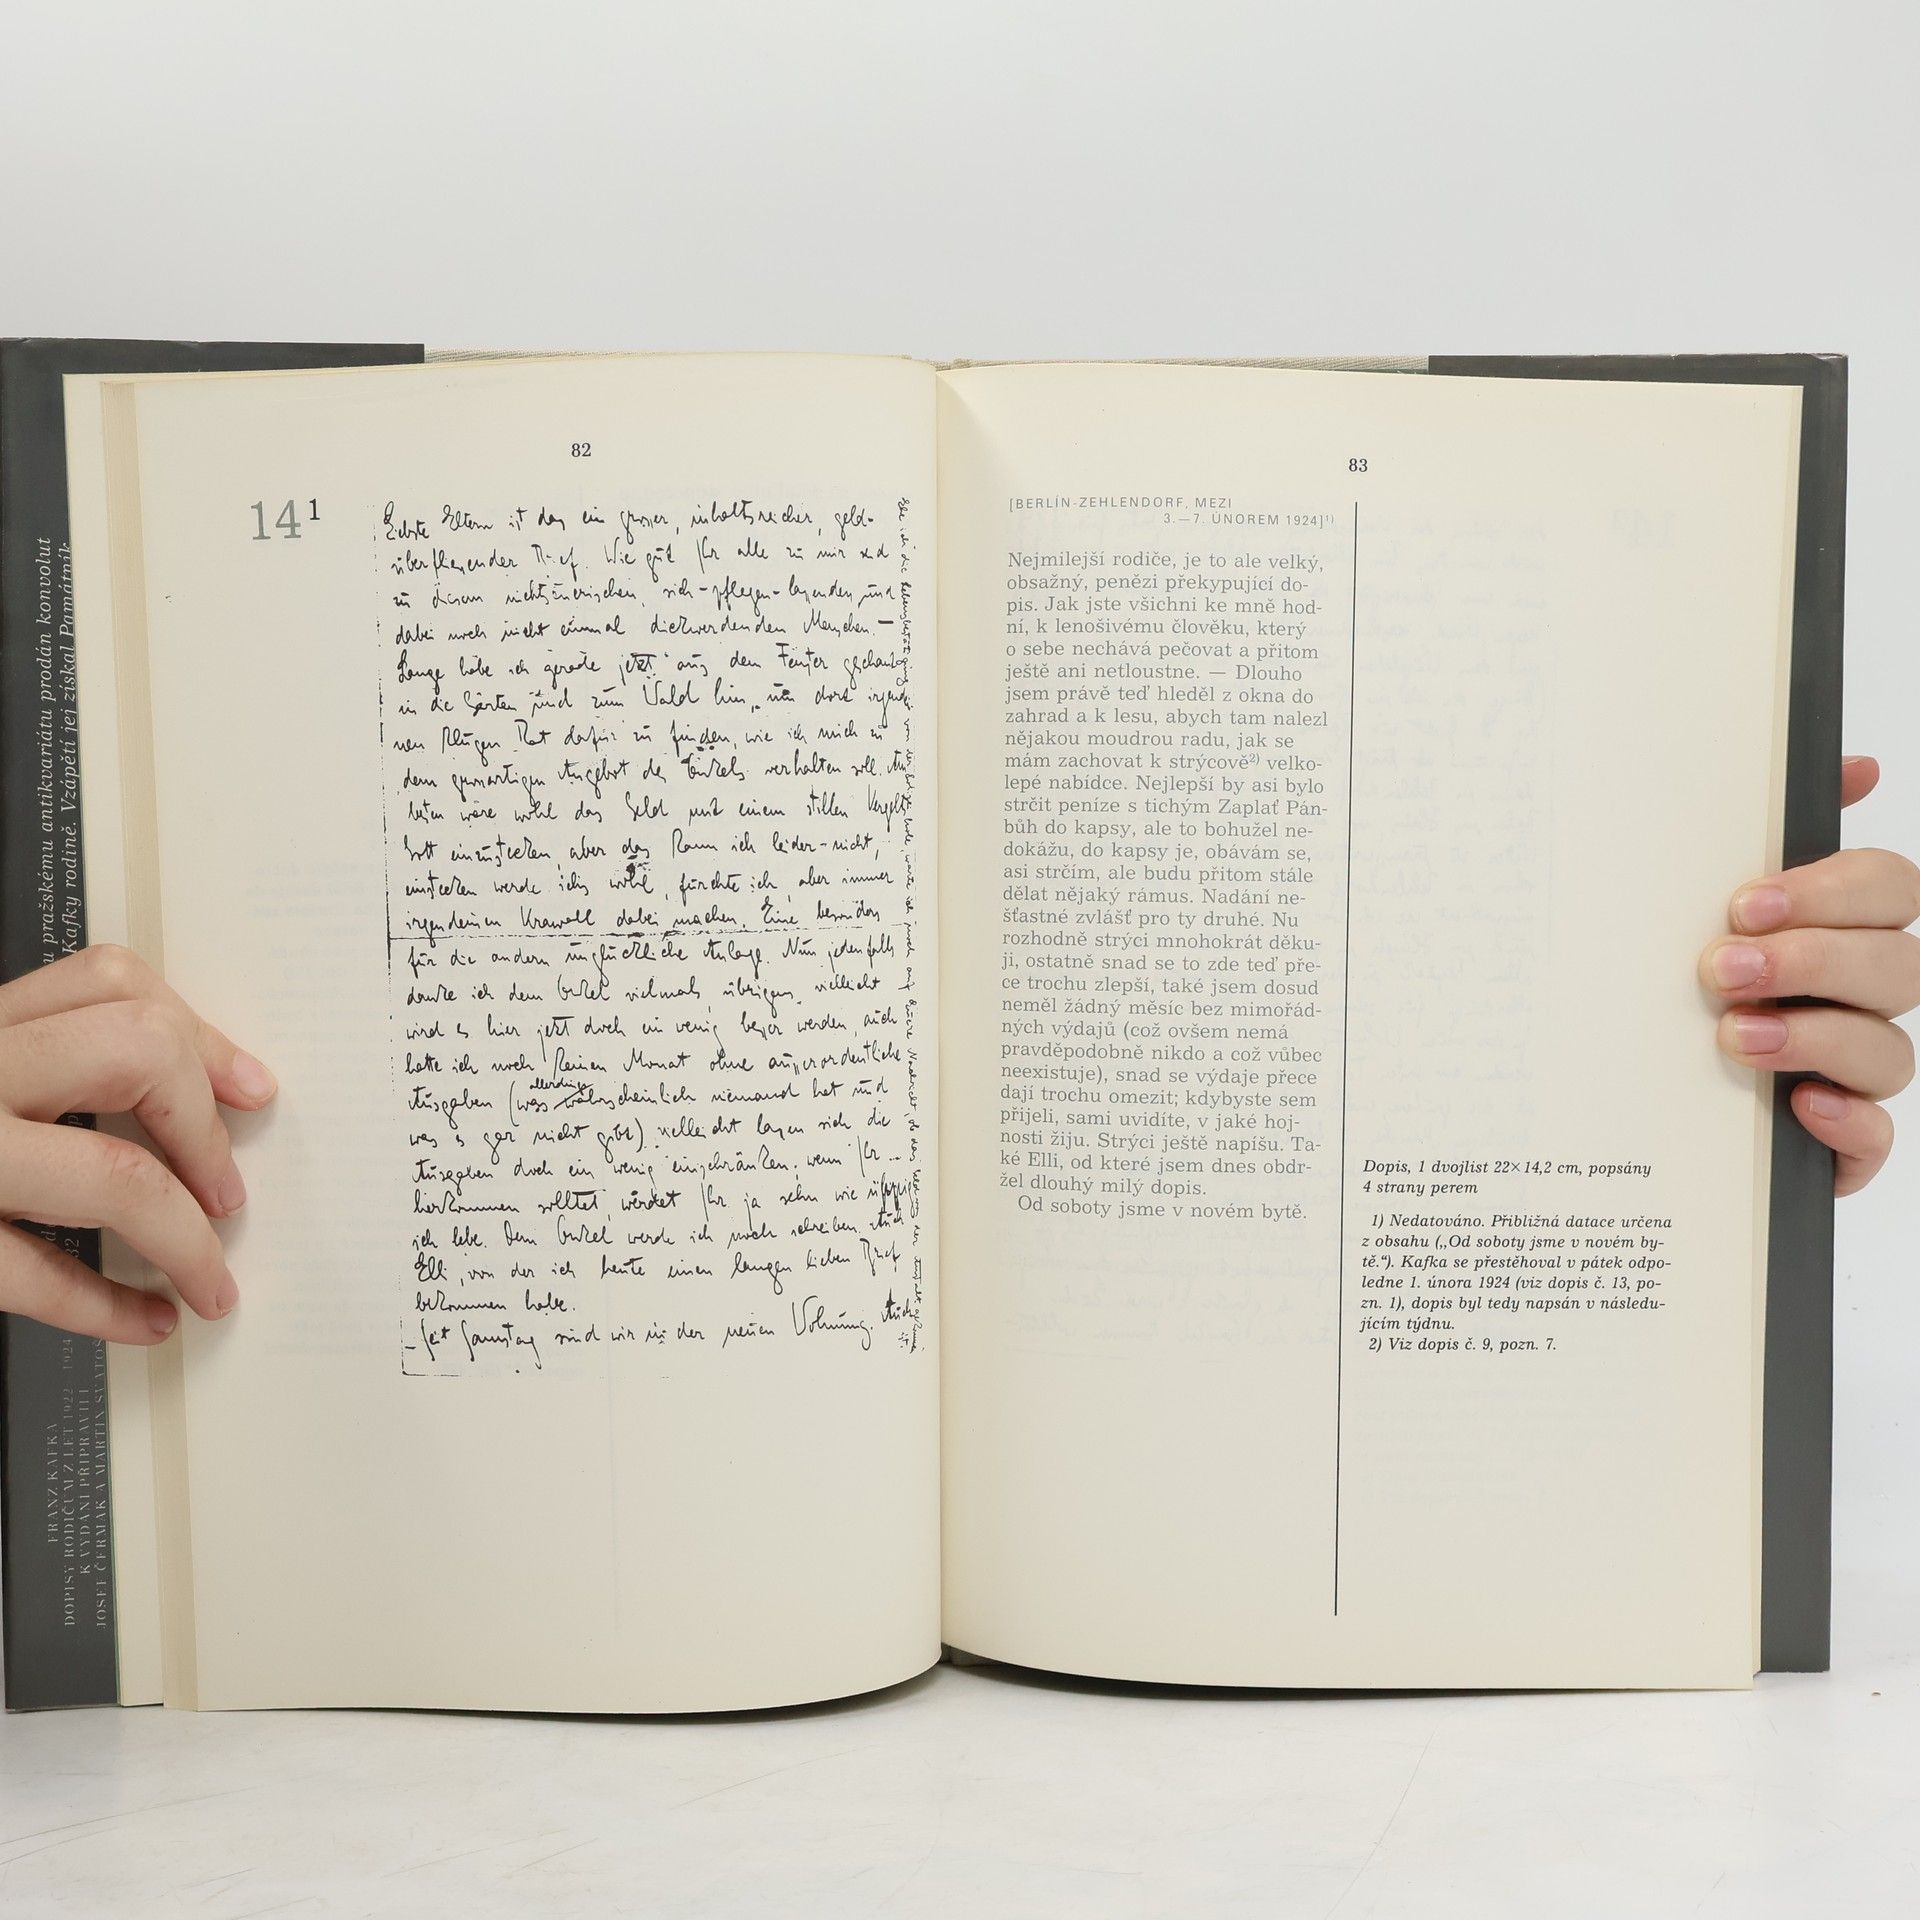 82
14¹
Liebste Eltern ist das ein grosser, inhaltsreicher, geld-
überfliessender Brief. Wie gut Ihr alle zu mir seid
zu diesem nichtstuerischen, sich-pflegen-lassenden und
dabei noch nicht einmal dickwerdenden Menschen. —
Lange habe ich gerade jetzt aus dem Fenster geschaut
in die Gärten und zum Wald hin, um dort irgendei
nen klugen Rat dafür zu finden, wie ich mich zu
dem grossartigen Angebot des Onkels verhalten soll. Am
besten wäre wohl das Geld mit einem stillen Vergelts
Gott einzustecken, aber das kann ich leider nicht,
einstecken werde ichs wohl, fürchte ich, aber immer
irgendeinen Krawall dabei machen. Eine besonders
für die andern unglückliche Anlage. Nun jedenfalls
danke ich dem Onkel vielmals, übrigens vielleicht
wird es hier jetzt doch ein wenig besser werden, auch
hatte ich noch keinen Monat ohne ausserordentliche
allerdings
Ausgaben (was wahrscheinlich niemand hat und
was es gar nicht gibt), vielleicht lassen sich die
Ausgaben doch ein wenig einschränken; wenn Ihr
herkommen solltet, würdet Ihr ja sehn wie üppig
ich lebe. Dem Onkel werde ich noch schreiben. Auch
Elli, von der ich heute einen langen lieben Brief
bekommen habe.
Seit Samstag sind wir in der neuen Wohnung. Auch
83
[BERLÍN-ZEHLENDORF, MEZI
3.—7. ÚNOREM 1924]¹⁾
Nejmilejší rodiče, je to ale velký,
obsažný, penězi překypující do-
pis. Jak jste všichni ke mně hod-
ní, k lenošivému člověku, který
o sebe nechává pečovat a přitom
ještě ani netloustne. — Dlouho
jsem právě teď hleděl z okna do
zahrad a k lesu, abych tam nalezl
nějakou moudrou radu, jak se
mám zachovat k strýcově²⁾ velko-
lepé nabídce. Nejlepší by asi bylo
strčit peníze s tichým Zaplať Pán-
bůh do kapsy, ale to bohužel ne-
dokážu, do kapsy je, obávám se,
asi strčím, ale budu přitom stále
dělat nějaký rámus. Nadání ne-
šťastné zvlášť pro ty druhé. Nu
rozhodně strýci mnohokrát děku-
ji, ostatně snad se to zde teď pře-
ce trochu zlepší, také jsem dosud
neměl žádný měsíc bez mimořád-
ných výdajů (což ovšem nemá
pravděpodobně nikdo a což vůbec
neexistuje), snad se výdaje přece
dají trochu omezit; kdybyste sem
přijeli, sami uvidíte, v jaké hoj-
nosti žiju. Strýci ještě napíšu. Ta-
ké Elli, od které jsem dnes obdr-
žel dlouhý milý dopis.
Od soboty jsme v novém bytě.
Dopis, 1 dvojlist 22×14,2 cm, popsány
4 strany perem
1) Nedatováno. Přibližná datace určena
z obsahu („Od soboty jsme v novém by-
tě.“). Kafka se přestěhoval v pátek odpo-
ledne 1. února 1924 (viz dopis č. 13, po-
zn. 1), dopis byl tedy napsán v následu-
jícím týdnu.
2) Viz dopis č. 9, pozn. 7.
pražskému antikvariátu prodán konvolut
Kafky rodině. Vzápětí jej získal Památník
FRANZ KAFKA
DOPISY RODIČŮM Z LET 1922–1924
K VYDÁNÍ PŘIPRAVILI
JOSEF ČERMÁK A MARTIN SVATOŠ